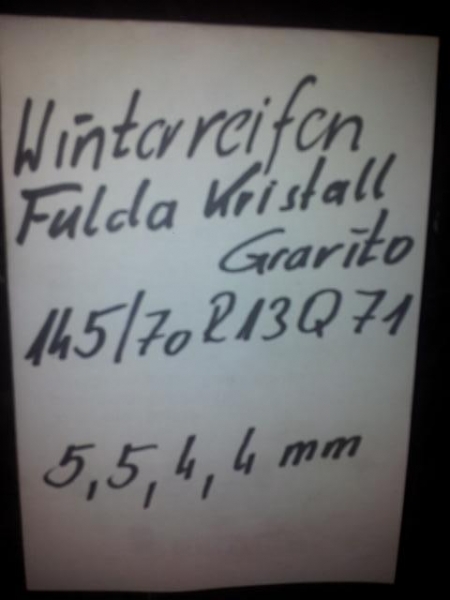 Winterreifen
Fulda Kristall
Gravito
145/70 R13 Q 71
5, 5, 4, 4 mm